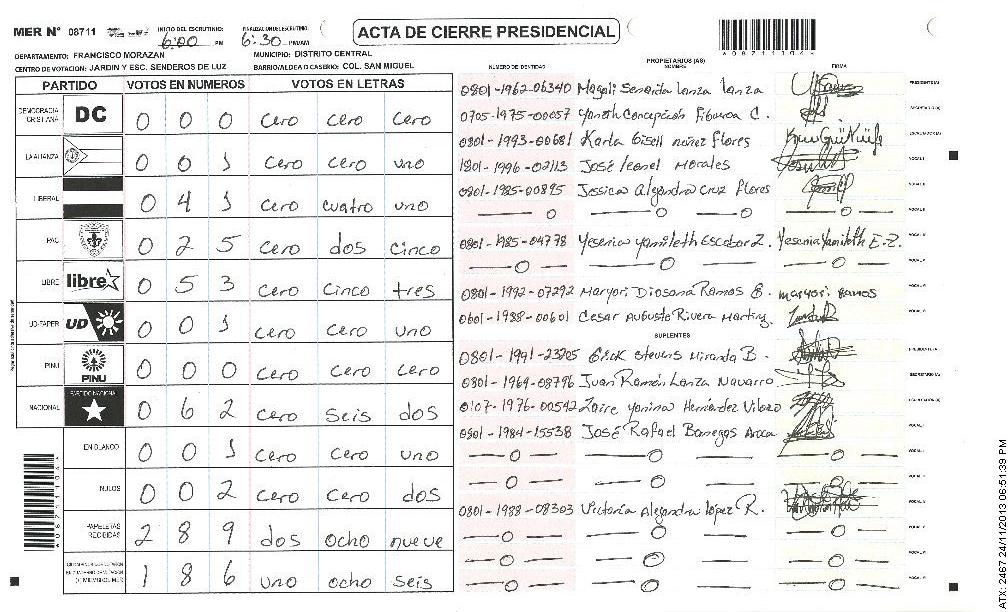 MER N° 08711 INICIO DEL ESCRUTINIO: 6:00 PM FINALIZACION DE ESCRUTINIO: 6:30 PM/AM
ACTA DE CIERRE PRESIDENCIAL
A087111043
DEPARTAMENTO: FRANCISCO MORAZAN MUNICIPIO: DISTRITO CENTRAL
CENTRO DE VOTACION: JARDIN Y ESC. SENDEROS DE LUZ BARRIO/ALDEA O CASERIO: COL. SAN MIGUEL
PARTIDO VOTOS EN NUMEROS VOTOS EN LETRAS
DEMOCRACIA CRISTIANA DC 0 0 0 cero cero cero
LA ALIANZA 0 0 1 cero cero uno
LIBERAL 0 4 1 cero cuatro uno
PAC 0 2 5 cero dos cinco
LIBRE libre 0 5 3 cero cinco tres
UD-FAPER UD 0 0 1 cero cero uno
PINU PINU 0 0 0 cero cero cero
NACIONAL PARTIDO NACIONAL 0 6 2 cero seis dos
EN BLANCO 0 0 1 cero cero uno
NULOS 0 0 2 cero cero dos
PAPELETAS RECIBIDAS 2 8 9 dos ocho nueve
1 8 6 uno ocho seis
PROPIETARIOS (AS)
NUMERO DE IDENTIDAD NOMBRE FIRMA
0801-1962-06340 Magali Senovia Lanza Lanza PRESIDENTE(A)
0705-1975-00057 Yaneth Concepción Figueroa C. SECRETARIO(A)
0801-1993-00681 Karla Gisell nuñez flores ESCRUTADOR(A)
1801-1996-02113 José Leonel Morales VOCAL I
0801-1985-00895 Jessica Alejandra Cruz flores VOCAL II
0801-1985-04778 Yesenia Yamileth Escobar Z. Yesenia Yamileth E.Z.
0801-1992-07292 Maryori Diosana Ramos B. maryori Ramos
0601-1988-00601 Cesar Augusto Rivera Martinez
SUPLENTES
0801-1991-23205 Erick Stevens Miranda B. PRESIDENTE(A)
0801-1969-08796 Juan Ramón Lanza Navarro SECRETARIO(A)
0107-1976-00542 Yanina Hernández
0801-1984-15538 José Rafael Banegas VOCAL I
0801-1988-08303 Victoria Alejandra López R.
ATX-2467 24/11/2013 06:51:39 PM